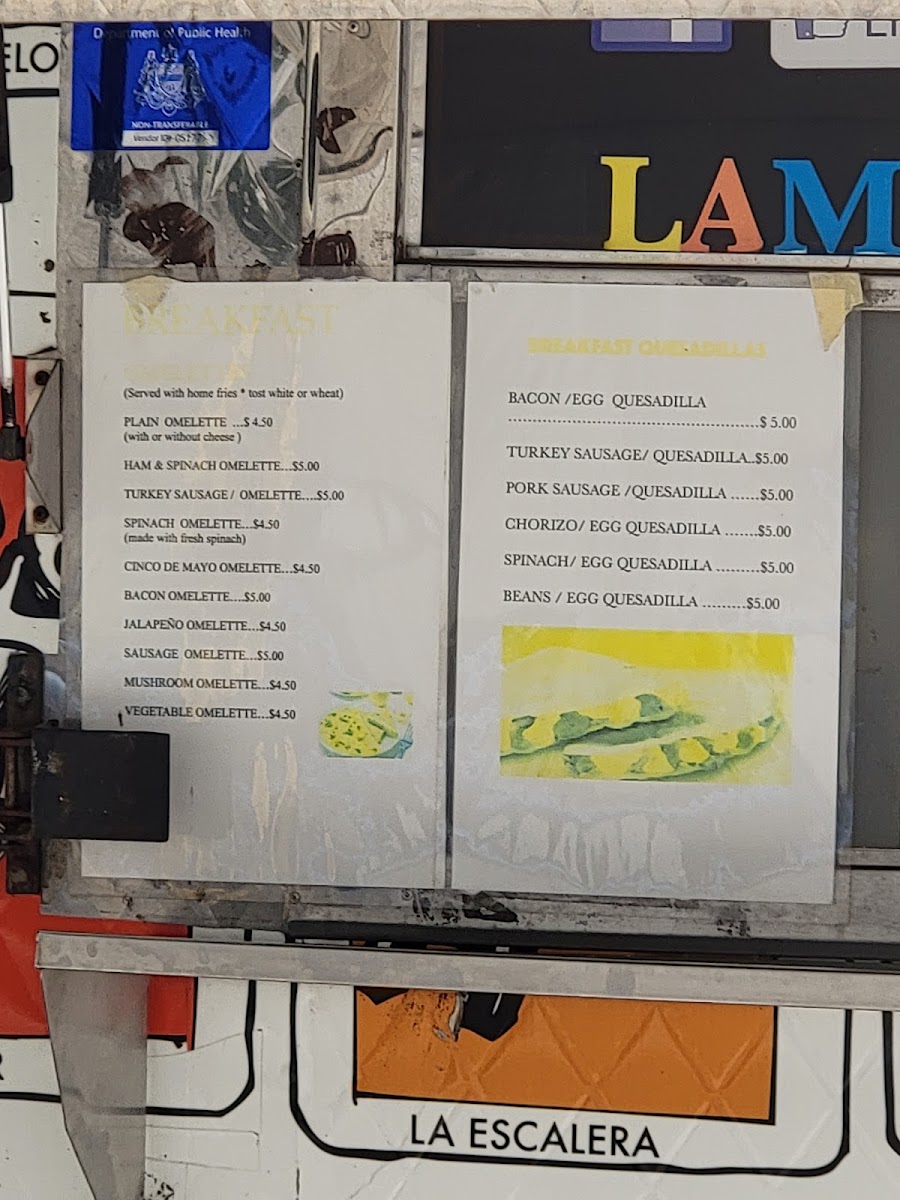 ELO
Department of Public Health
NON-TRANSFERABLE
LAM
BREAKFAST
(Served with home fries * tost white or wheat)
PLAIN OMELETTE ...$ 4.50
(with or without cheese )
HAM & SPINACH OMELETTE...$5.00
TURKEY SAUSAGE / OMELETTE....$5.00
SPINACH OMELETTE...$4.50
(made with fresh spinach)
CINCO DE MAYO OMELETTE...$4.50
BACON OMELETTE....$5.00
JALAPEÑO OMELETTE...$4.50
SAUSAGE OMELETTE...$5.00
MUSHROOM OMELETTE...$4.50
VEGETABLE OMELETTE...$4.50
BREAKFAST QUESADILLAS
BACON /EGG QUESADILLA
..................................................$ 5.00
TURKEY SAUSAGE/ QUESADILLA..$5.00
PORK SAUSAGE /QUESADILLA ......$5.00
CHORIZO/ EGG QUESADILLA .......$5.00
SPINACH/ EGG QUESADILLA .........$5.00
BEANS / EGG QUESADILLA .........$5.00
LA ESCALERA